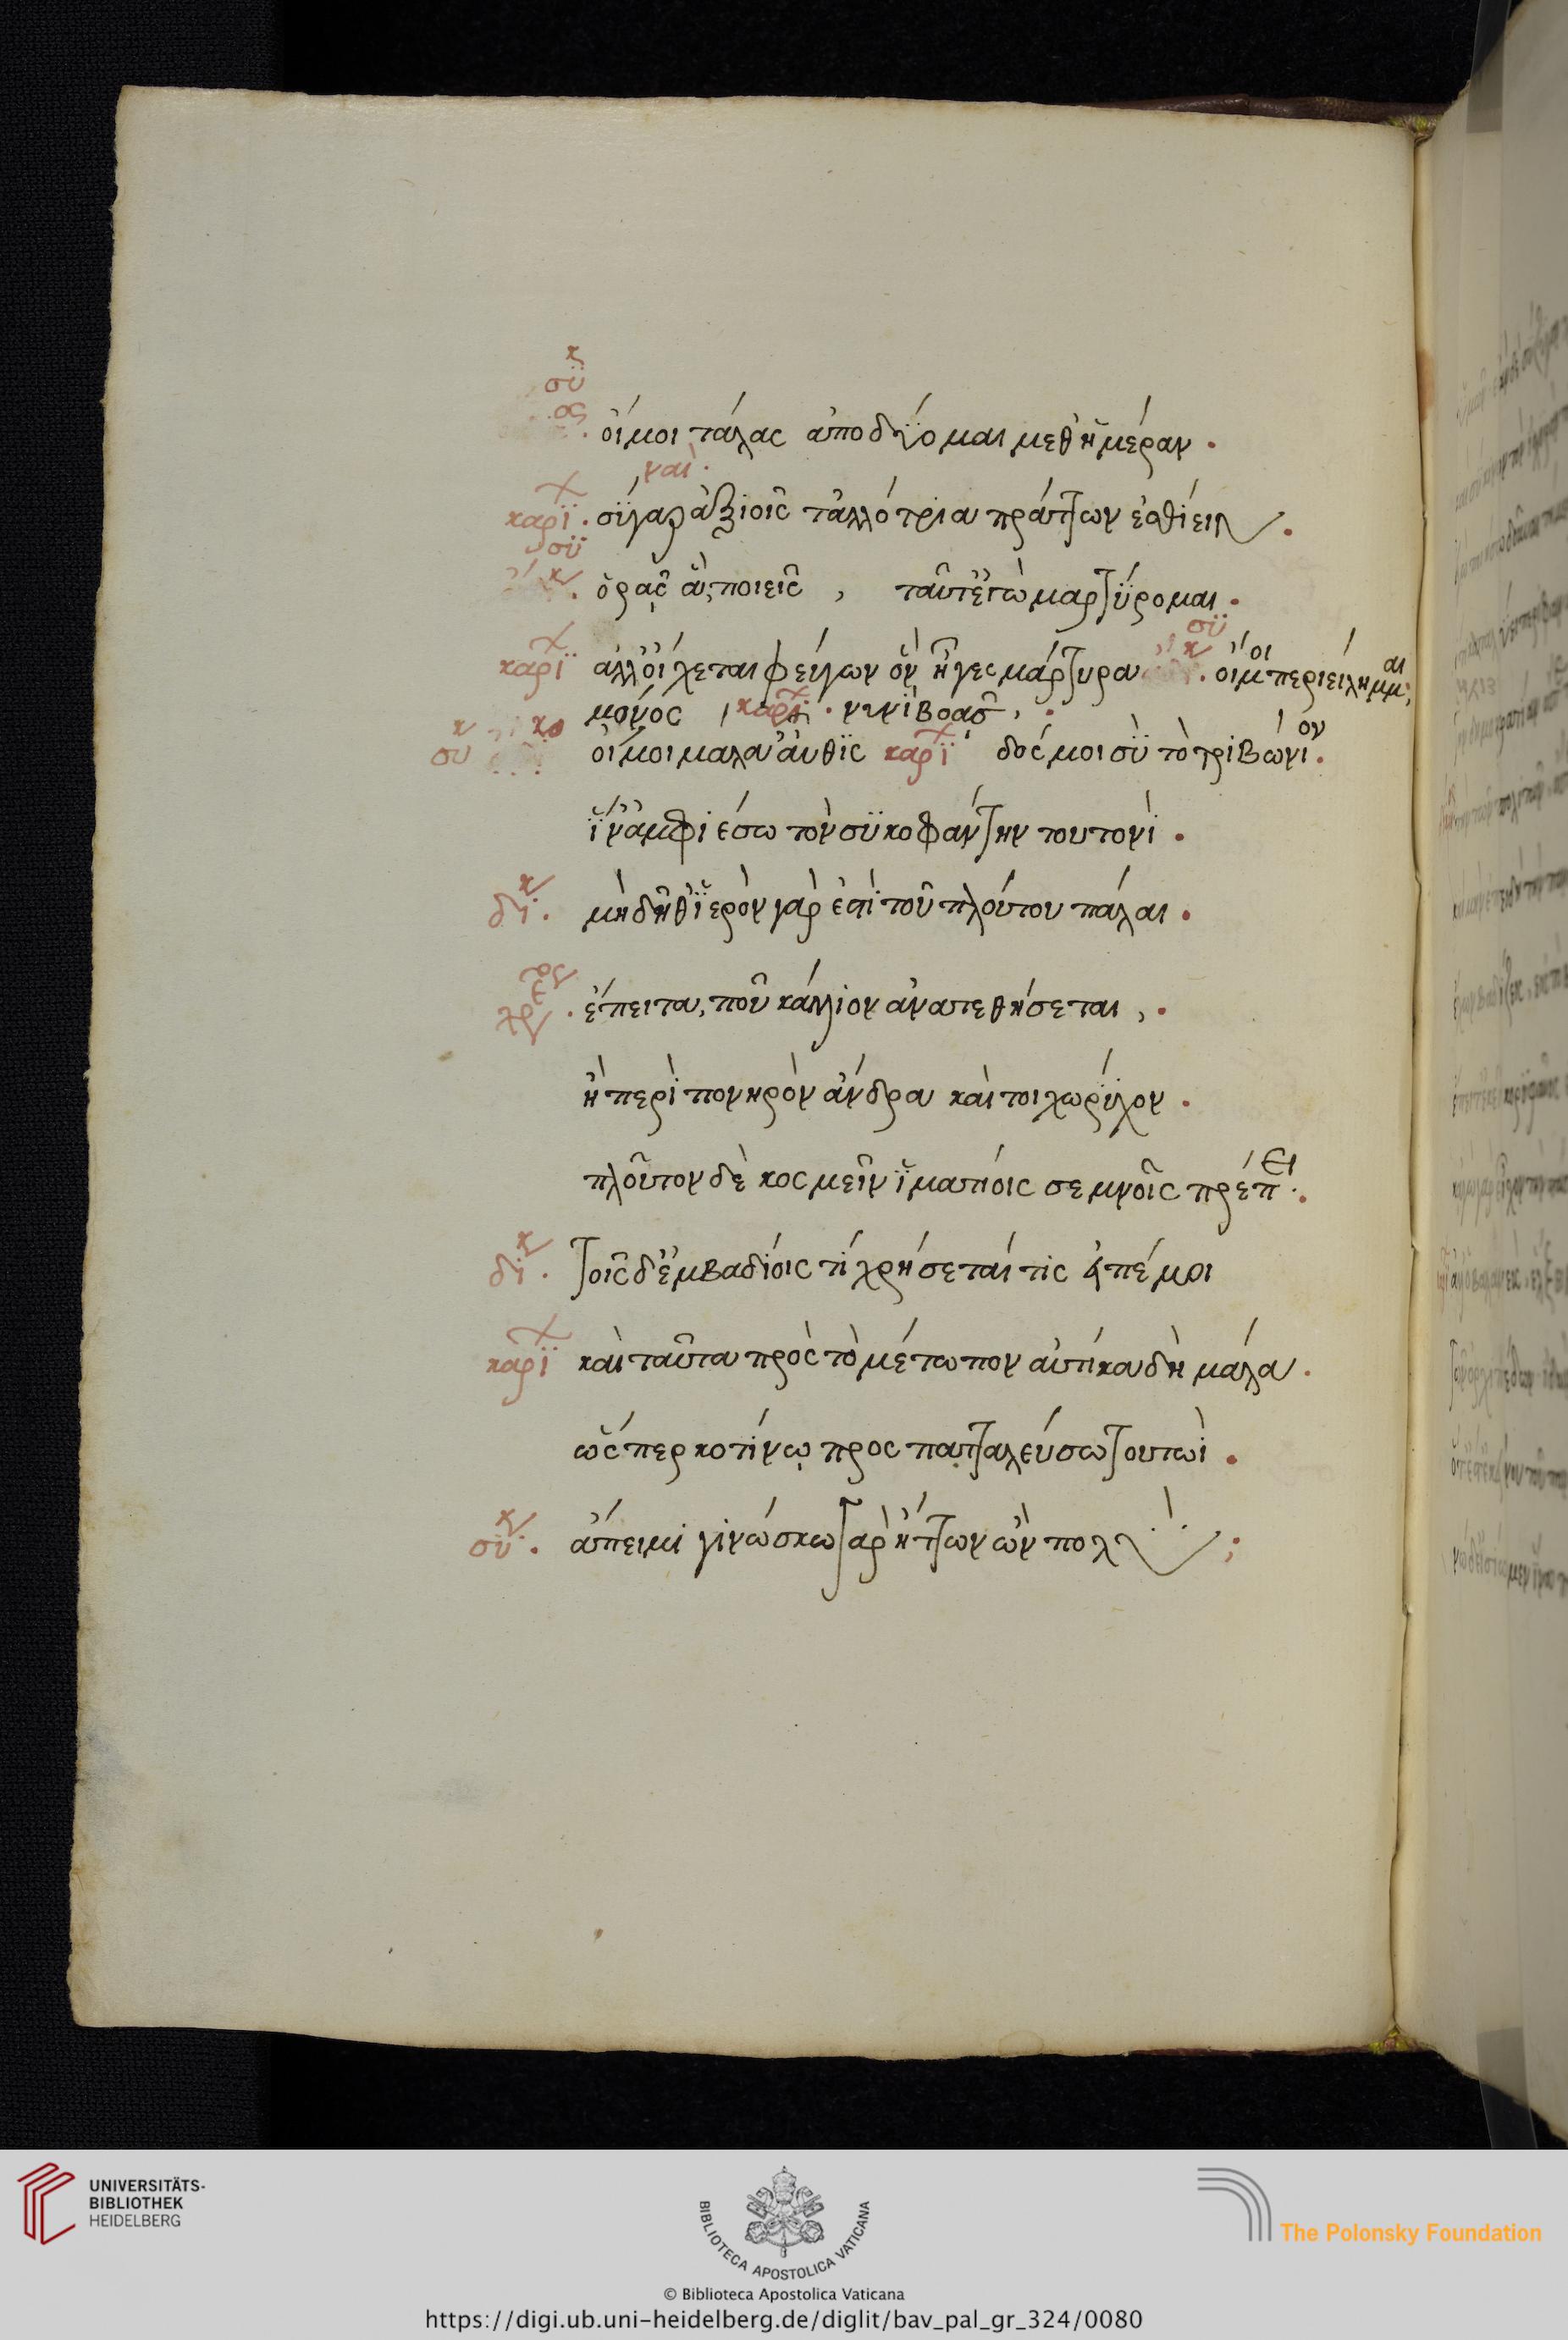 συκ
οἴμοι τάλας ἀποδύομαι μεθ' ἡμέραν.
ναὶ.
καρΐ. σὺ γὰρ ἀξιοῖς τἀλλότρια πράττων ἐσθίειν.
συκ
ὁρᾷς ἃ ποιεῖς, ταῦτ' ἐγὼ μαρτύρομαι.
συκ
καρΐ ἀλλ' οἴχεται φεύγων ὃν ἦγες μάρτυρα. οἴμοι περιείλημμαι
μόνος, καρΐ. νυνὶ βοᾷς,
συκ οἴμοι μάλ' αὖθις καρΐ δός μοι σὺ τὸ τριβώνιον.
ἵν' ἀμφιέσω τὸν συκοφάντην τουτονί.
δίκ. μὴ δῆθ' ἱερὸν γάρ ἐστι τοῦ πλούτου πάλαι.
χρε. ἔπειτα, ποῦ κάλλιον ἀνατεθήσεται,.
ἢ περὶ πονηρὸν ἄνδρα καὶ τοιχωρύχον.
πλοῦτον δὲ κοσμεῖν ἱματίοις σεμνοῖς πρέπει.
δίκ. τοῖς δ' ἐμβαδίοις τί χρήσεταί τις εἰπέ μοι
καρΐ καὶ ταῦτα πρὸς τὸ μέτωπον αὐτίκα δὴ μάλα.
ὥσπερ κοτίνῳ προσπατταλεύσω τουτωί.
συκ. ἄπειμι γινώσκω γὰρ ἥττων ὢν πολὺ
UNIVERSITÄTS-
BIBLIOTHEK
HEIDELBERG
BIBLIOTECA APOSTOLICA VATICANA
The Polonsky Foundation
© Biblioteca Apostolica Vaticana
https://digi.ub.uni-heidelberg.de/diglit/bav_pal_gr_324/0080